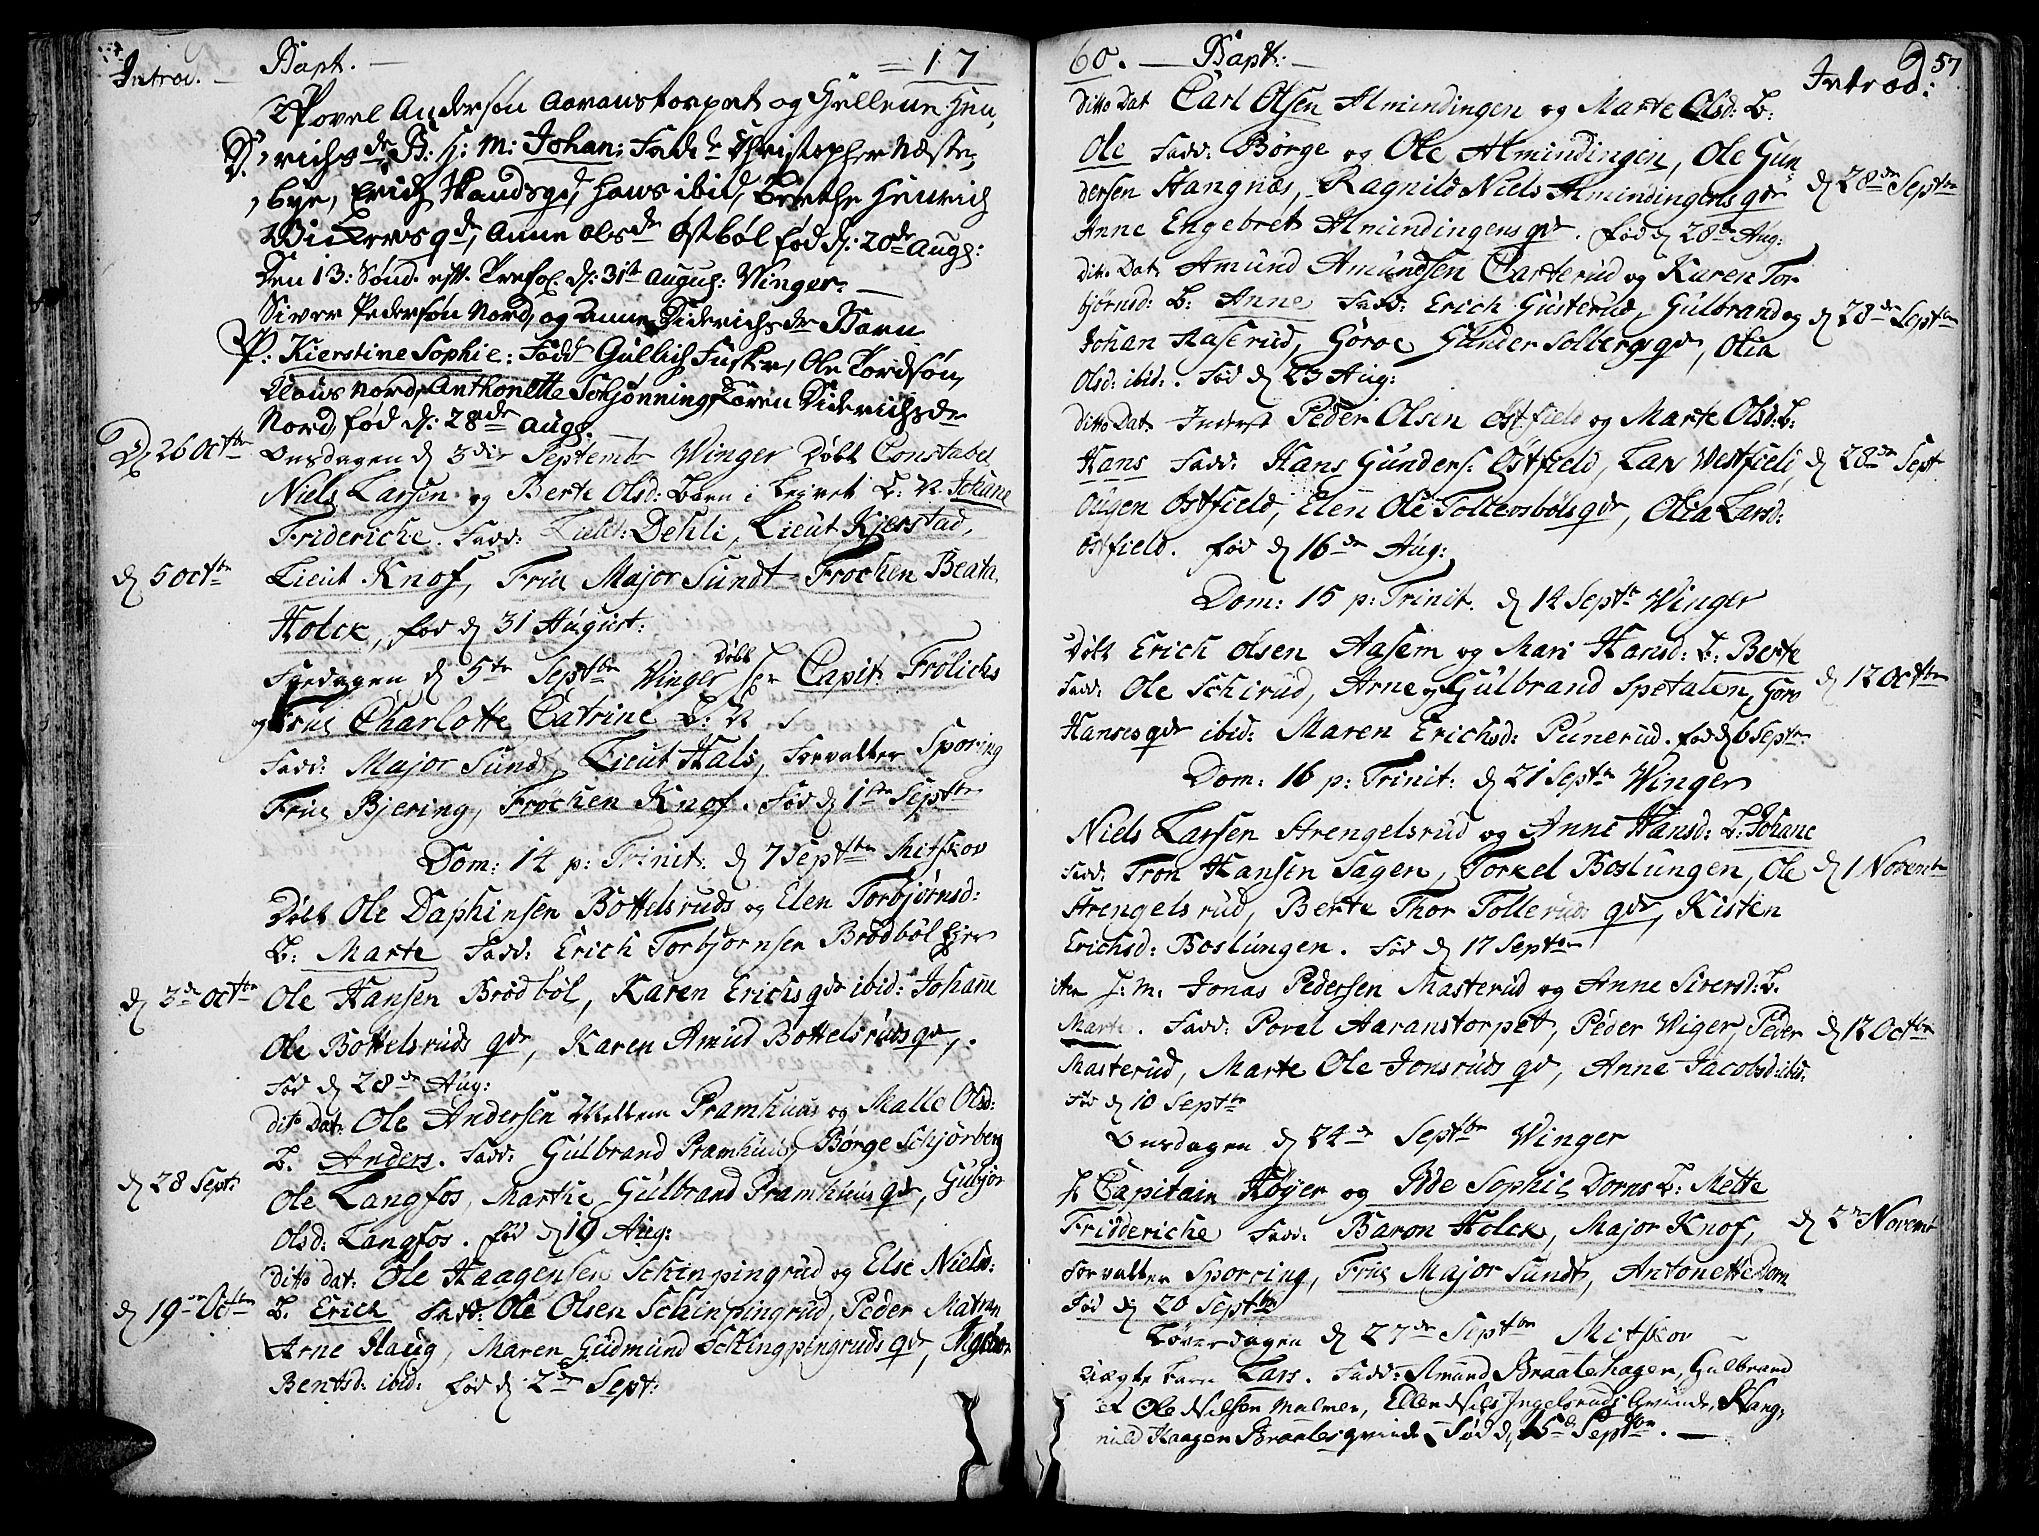 Introd. — Bapt. — = 17
Povel Andersøn Aaranstorpet og Hellene Hen,
D. richsdr B: H: M: Johan: Fad: Christopher Næste,
bye, Erich Strandsgd, Hans ibid, Berthe Henrich
Wickersqd, Anne Olsdr Østbøl fød d: 20de Augs:
Den 13: Sønd. eft. Trefol. d: 31te Augus: Winger. —
Siver Pedersøn Nord, og Anne Diderichsdr Barn
P: Kierstine Sophie: Fadd: Gullich Fusker, Ole Tordsøn,
Claus Nord, Anthonette Schjønning, Karen Diderichsdr
Nord, fød d: 28de Augs.
D 26 Octbr Onsdagen d 3die Septembr Winger Døbt Constabel
Niels Larsen og Berte Olsd: Barn i Leyret B: N. Johane
Frideriche. Fadd: Lieut: Dehli, Lieut Kjerstad,
d 5 Octbr Lieut Knof, Frue Major Sundt Frøchen Beata
Holck, fød d 31 August:
Fredagen d 5te Septbr Winger Døbt Hr Capit: Frølichs
og Frue Charlotte Catrine B: N
Fadd: Major Sundt, Lieut Hals, Forvalter Sporing
Frue Bjering, Frøchen Knof. Fød d 1ste Septbr
Dom: 14 p: Trinit: d 7 Septbr Mitskov
Døbt Ole Daphinsen Bottelsrud og Elen Torbjørnsd:
B: Marte Fadd: Erich Torbjørnsen Brødbøl Ejer
d 3de Octbr Ole Hansen Brødbøl, Karen Erichs qd ibid: Johane
Ole Bottelsruds qd, Karen Amud Bottelsruds qd,
Fød d 28de Aug:
Dito Dat: Ole Andersen Mellem Pramhuus og Malle Olsd:
B. Anders. Fadd: Gulbrand Pramhuus, Børge Schjørberg
d 28 Sept: Ole Langfos, Marthe Gulbrand Pramhuus qd, Gubjør
Olsd: Langfos. fød d 19 Aug:
Ditto dat: Ole Haagensen Schinpingrud og Else Nielsd:
d 19de Octbr B. Erick Fadd: Ole Olsen Schinpingrud, Peder Matran
Arne Haug, Maren Gudmund Schingpingruds qd,
Bentsd: ibid: Fød d 2den Sept:
60. — Bapt: — Introd: 57
Ditto Dat Carl Olsen Almindingen og Marte Olsd: B:
Ole Fadd: Børge og Ole Almindingen, Ole Gun-
dersen Stangnæs, Ragnild Niels Almindingens qd d 28de Septbr
Anne Engebret Almindingens qd. fød d 28de Aug:
Dito Dat Amund Amundsen Carterud og Karen Tor-
bjørnsd: B: Anne Fadd: Erich Gusterud, Gulbrand og d 28de Septbr
Johan Aaserud, Goroe Gunder Solbergs qd, Olia
Olsd: ibid: . Fød d 23 Aug:
Ditto Dat. Inderst Peder Olsen Østfield og Marte Olsd: B:
Hans Fadd: Hans Gunders: Østfield, Lars Westfield d 28de Sept
Østfield, Elen Ole Tollersbøls qd, Olia Larsd:
Østfield. fød d 16de Aug:
Dom: 15 p: Trinit. d 14 Septbr Winger
Døbt Erich Olsen Aasem og Mari Hansd: B: Berte
Fadd: Ole Schirud, Arne og Gulbrand Spetalen, Goro d 12 Octbr
Hanses qd ibid: Maren Erichsd: Punerud. fød d 6 Septbr
Dom: 16 p: Trinit: d 21 Septbr Winger
Niels Larsen Strengelsrud og Anne Hansd: B: Johane
Fadd: Tron Hansen Sagen, Torkel Boslungen, Ole d 1 Novembr
Strengelsrud, Berte Thor Tollerruds qd, Kisten
Erichsd: Boslungen. Fød d 17 Septbr
H: M: Jonas Pedersen Masterud og Anne Siversd: B.
Marte. Fadd: Povel Aaranstorpet, Peder Wiger, Peder d 12 Octbr
Masterud, Marte Ole Jonsruds qd, Anne Jacobsd: ibid:
Fød d 10 Septbr
Onsdagen d 24de Septbr Winger
Hr Capitain Høyer og Ide Sophie Dorns B: Mette
Fridderiche Fadd: Baron Holck, Major Knof, d 2den Novemb
Forvalter Sporring, Frue Major Sundt, Antonette Dorn
Fød d 20 Septbr
Løverdagen d 27de Septbr Mitskov —
Uægte barn Lars. Fadd: Amund Braatehagen, Gulbrand
et Ole Nilsen Malmer, Ellen Nils Ingelsruds Qvinde, Rang-
nild Haagen Braates qvinde, Fød d 15de Septbr. —